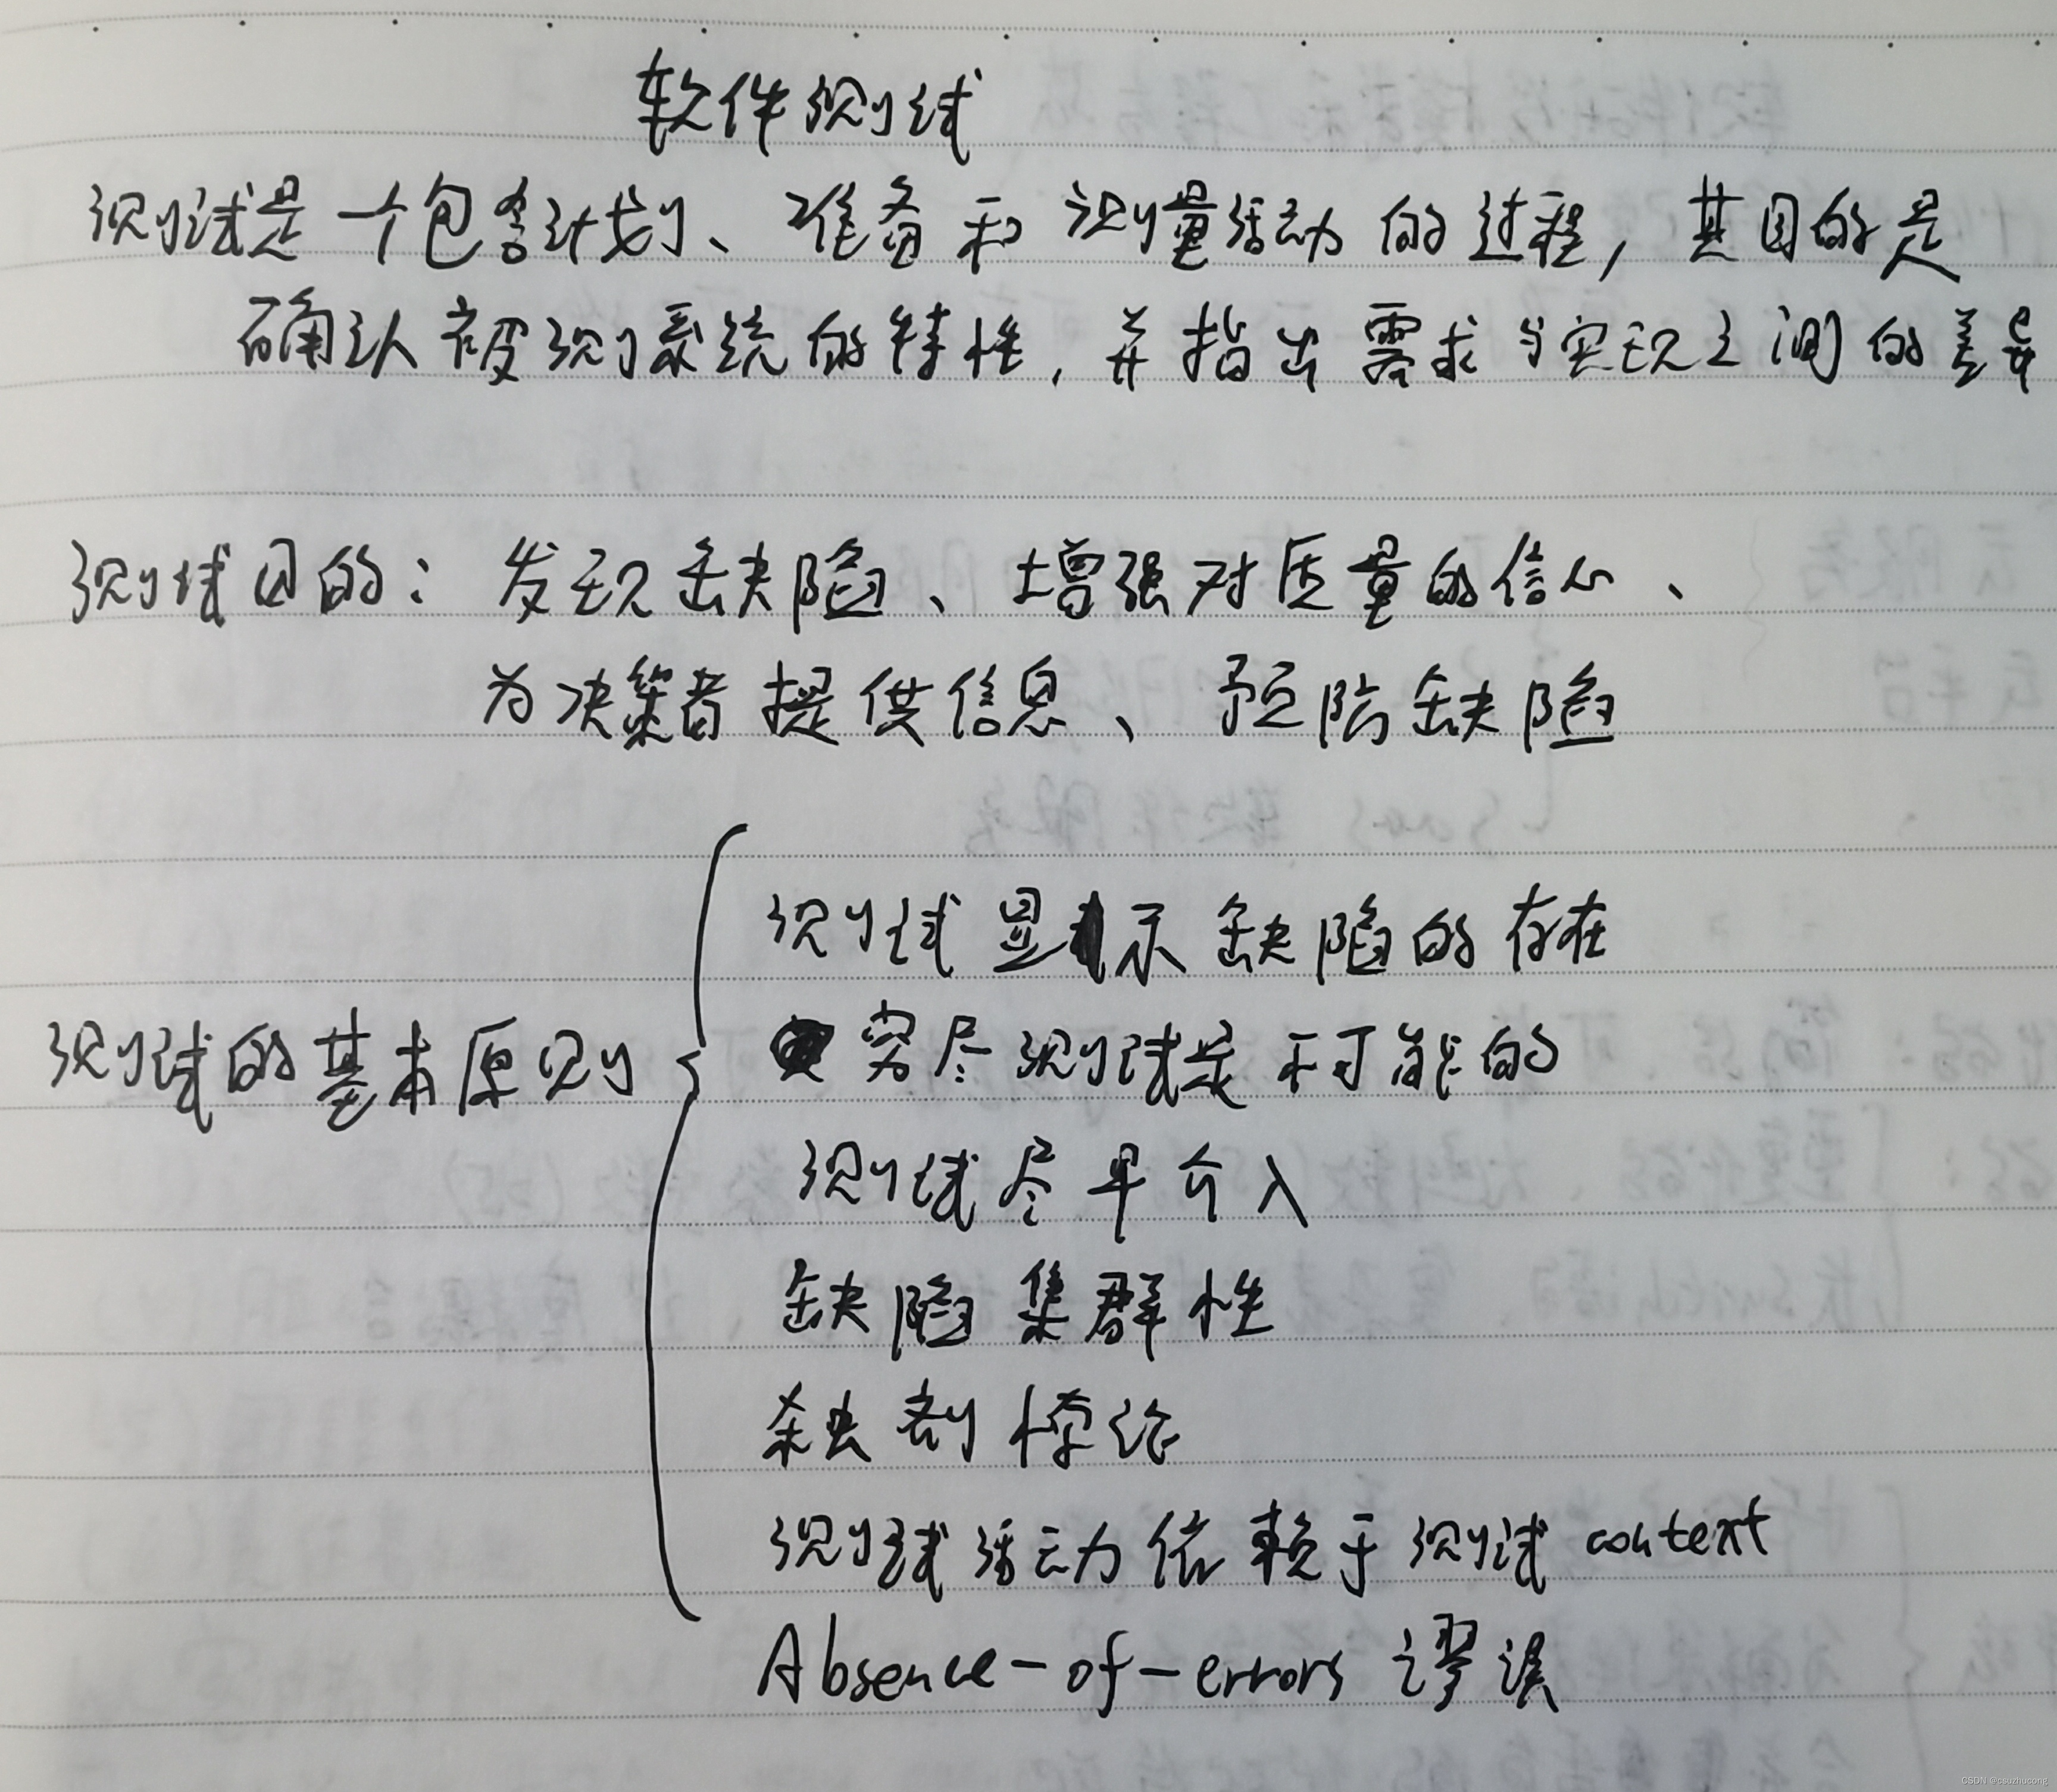 软件测试
测试是一个包含计划、准备和测量活动的过程,其目的是
确认被测系统的特性,并指出需求与实现之间的差异
测试目的:发现缺陷、增强对质量的信心、
为决策者提供信息、预防缺陷
测试显示缺陷的存在
穷尽测试是不可能的
测试的基本原则
测试尽早介入
缺陷集群性
杀虫剂悖论
测试活动依赖于测试context
Absence-of-errors谬误
CSDN @csuzhucong